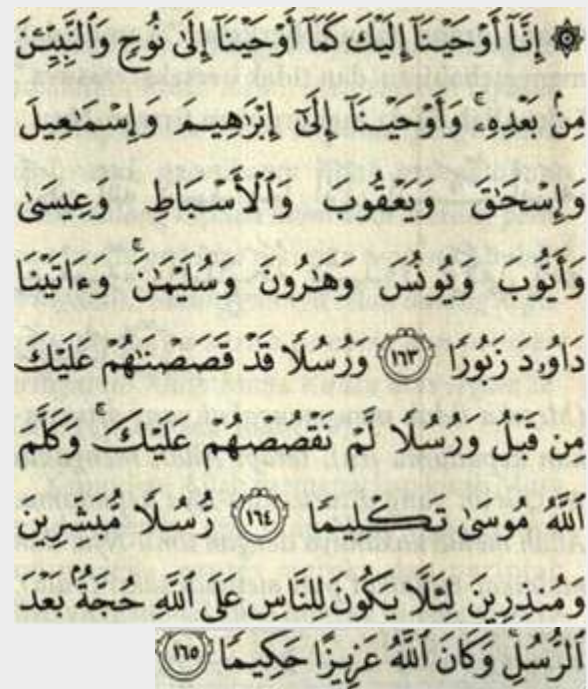 ۞ إِنَّآ أَوْحَيْنَآ إِلَيْكَ كَمَآ أَوْحَيْنَآ إِلَىٰ نُوحٍ وَٱلنَّبِيِّـۧنَ
مِنۢ بَعْدِهِۦ ۚ وَأَوْحَيْنَآ إِلَىٰٓ إِبْرَٰهِيمَ وَإِسْمَـٰعِيلَ
وَإِسْحَـٰقَ وَيَعْقُوبَ وَٱلْأَسْبَاطِ وَعِيسَىٰ
وَأَيُّوبَ وَيُونُسَ وَهَـٰرُونَ وَسُلَيْمَـٰنَ ۚ وَءَاتَيْنَا
دَاوُۥدَ زَبُورًا ١٦٣ وَرُسُلًا قَدْ قَصَصْنَـٰهُمْ عَلَيْكَ
مِن قَبْلُ وَرُسُلًا لَّمْ نَقْصُصْهُمْ عَلَيْكَ ۚ وَكَلَّمَ
ٱللَّهُ مُوسَىٰ تَكْلِيمًا ١٦٤ رُّسُلًا مُّبَشِّرِينَ
وَمُنذِرِينَ لِئَلَّا يَكُونَ لِلنَّاسِ عَلَى ٱللَّهِ حُجَّةٌۢ بَعْدَ
ٱلرُّسُلِ ۚ وَكَانَ ٱللَّهُ عَزِيزًا حَكِيمًا ١٦٥